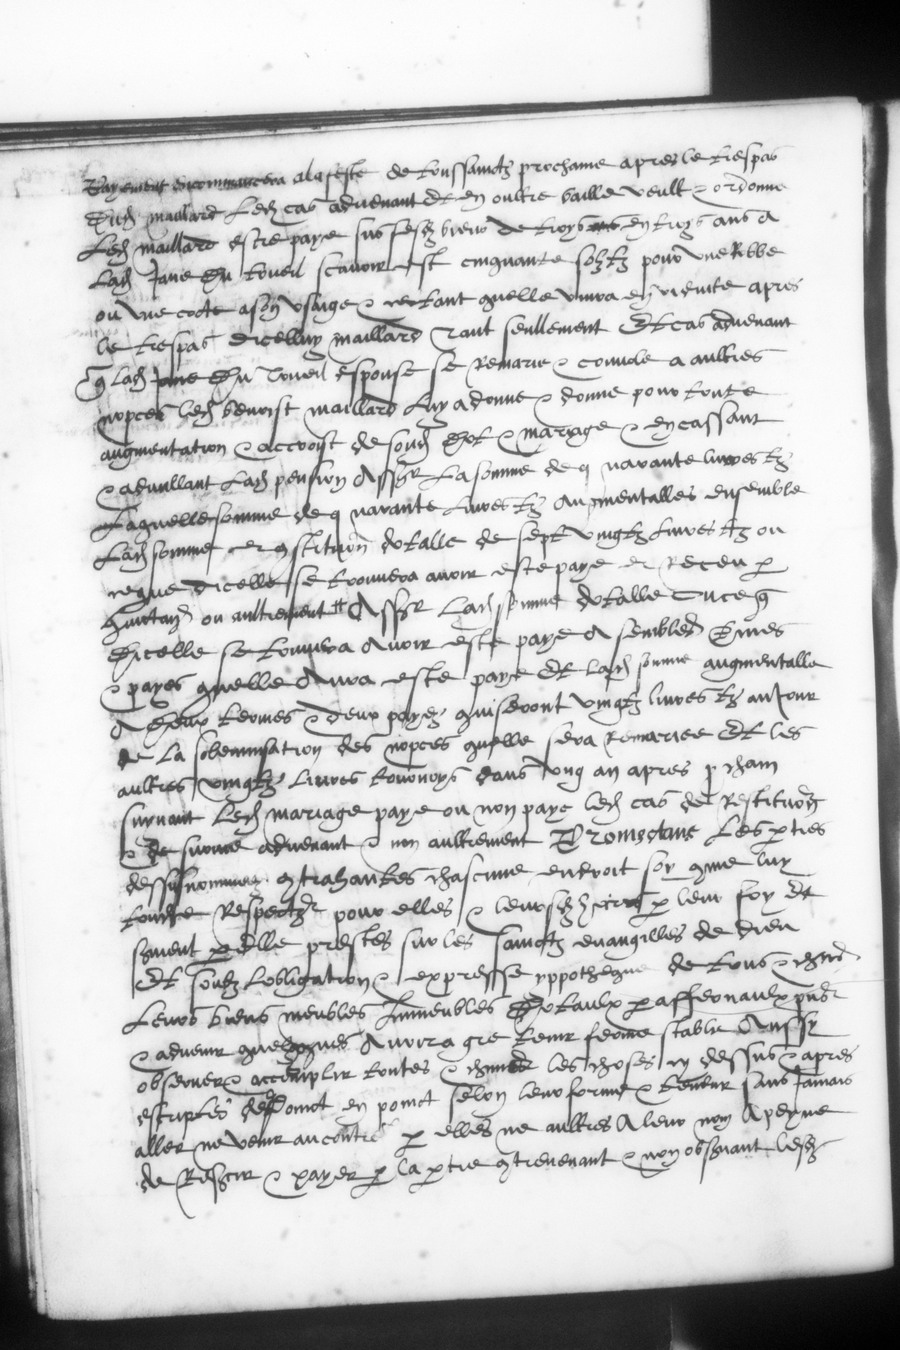 Payement encommancera a la feste de toussainctz prochaine apres le trespas
dud maillard Led cas advenant Et en oultre baille veult & ordonne
Led maillard estre paye sus sesd biens de troys en troys ans a
Lad Jane du toueil scavoir est cinquante solz tz pour une Robbe
ou une cotte a son usaige & tant quelle vivra en viduite apres
le trespas dicelluy maillard tant seullement Et cas advenant
q lad Jane du toueil espouse se Remarie & convole a aultres
nopces led benoist maillard luy a donne & donne pour toute
augmentation & accroist de soud dot & mariage & en cassant
& adnullant Lad pension La somme de quarante livres tz
Laquelle somme de quarante livres tz augmentalles ensemble
Lad somme & constitution dotalle de sept vingtz livres tz ou
ce que dicelle se trouvera avoir este paye et Receu p
quictan ou aultrement Lad somme dotalle ou ce q
dicelle se trouvera avoir este paye a semblables termes
& payes quelle aura este paye Et lad somme augmentalle
a deux termes & deux payes qui seront vingtz livres tz au Jour
de la solempnisation des nopces quelle sera Remariee Et les
aultres vingtz livres tournoys dans ung an apres p chain
suyvant Led mariage paye ou non paye led cas de Restitution
& de survie advenant & non aultrement Promectans Les pties
dessus nommez contrahantes chascune endroit soy comme luy
touche Respect pour elles & leursd hoirs p leur foy Et
sment p elle prestes sur les sainctz evangilles de dieu
Et soubz lobligation & expresse yppotheque de tous & chuns
Leurs biens meubles Immeubles dotaulx paffernaulx pns
& advenir quelzconques Avoir a gre tenir ferme stable Ainsy
observer & accomplir toutes & chunes les choses cy dessus & apres
escriptes de poinct en poinct selon leur forme & teneur sans Jamais
aller ne venir au contre p elles ne aultres A leur nom A peyne
de Ressir & payer p la ptie contrevenant & non observant lesd